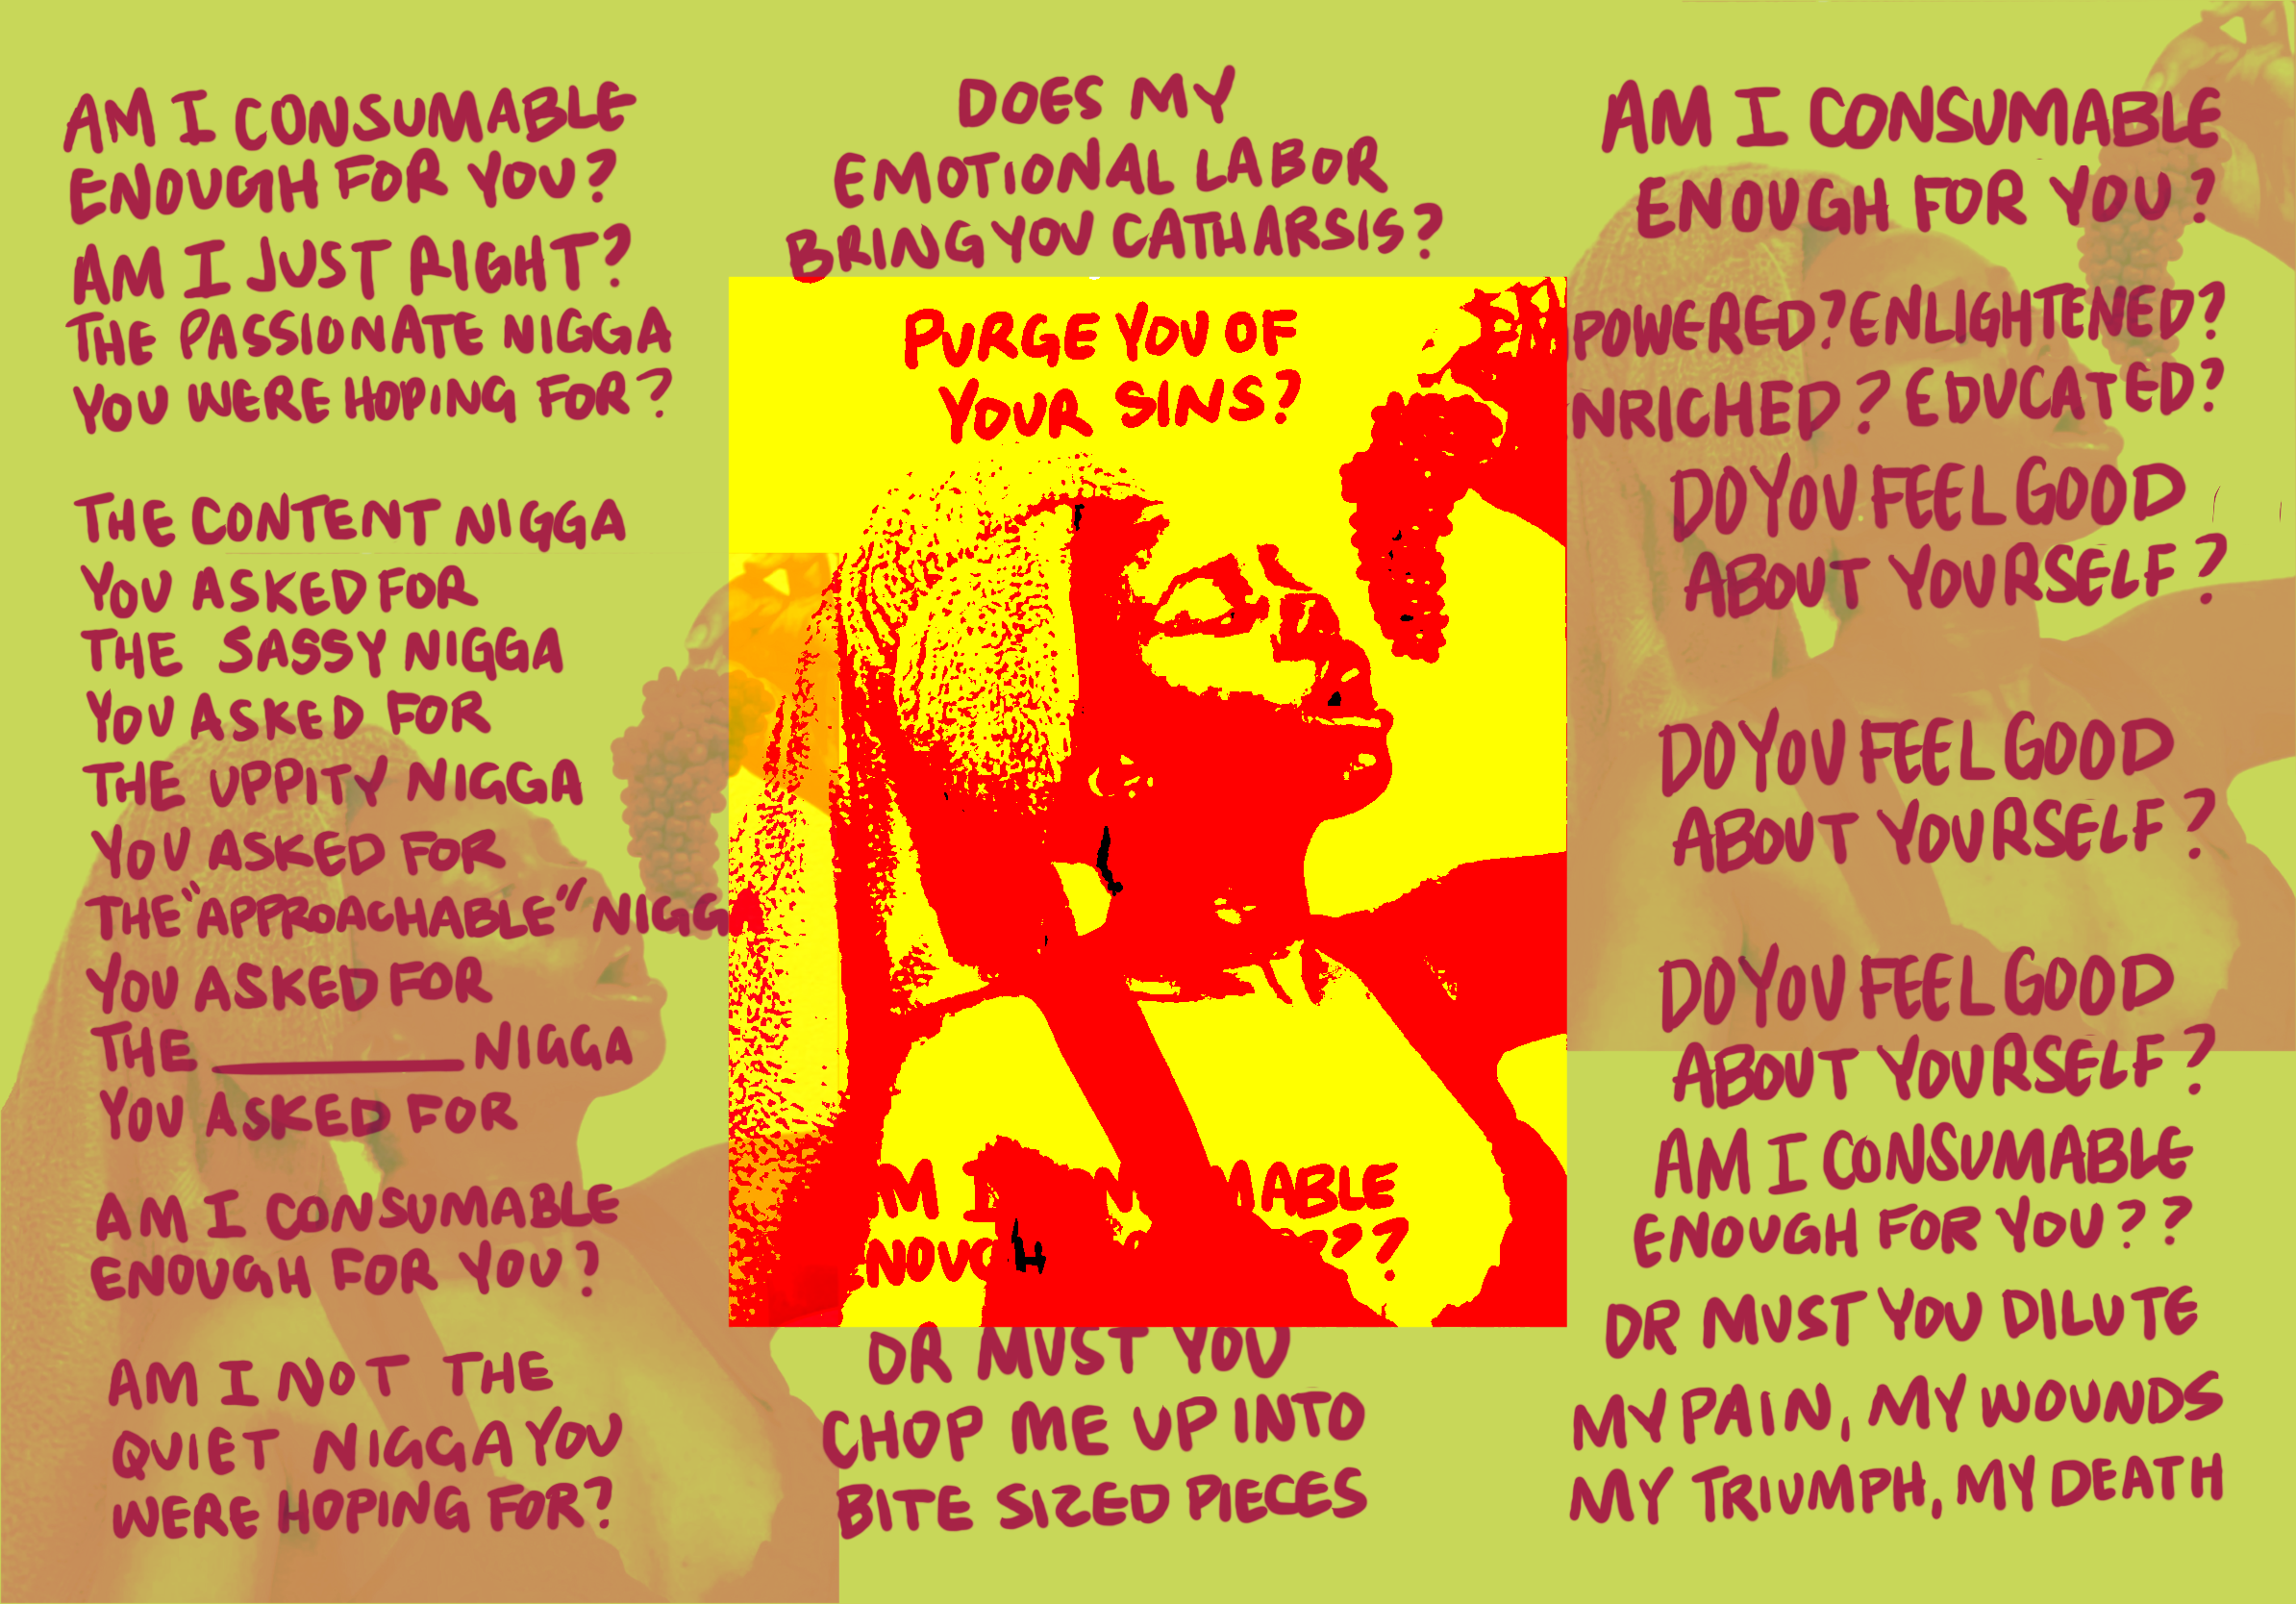 AM I CONSUMABLE
ENOUGH FOR YOU?
AM I JUST RIGHT?
THE PASSIONATE NIGGA
YOU WERE HOPING FOR?
THE CONTENT NIGGA
YOU ASKED FOR
THE SASSY NIGGA
YOU ASKED FOR
THE UPPITY NIGGA
YOU ASKED FOR
THE "APPROACHABLE" NIGGA
YOU ASKED FOR
THE ________ NIGGA
YOU ASKED FOR
AM I CONSUMABLE
ENOUGH FOR YOU?
AM I NOT THE
QUIET NIGGA YOU
WERE HOPING FOR?
DOES MY
EMOTIONAL LABOR
BRING YOU CATHARSIS?
PURGE YOU OF
YOUR SINS?
AM I CONSUMABLE
ENOUGH ???
OR MUST YOU
CHOP ME UP INTO
BITE SIZED PIECES
AM I CONSUMABLE
ENOUGH FOR YOU?
EMPOWERED? ENLIGHTENED?
ENRICHED? EDUCATED?
DO YOU FEEL GOOD
ABOUT YOURSELF?
DO YOU FEEL GOOD
ABOUT YOURSELF?
DO YOU FEEL GOOD
ABOUT YOURSELF?
AM I CONSUMABLE
ENOUGH FOR YOU??
OR MUST YOU DILUTE
MY PAIN, MY WOUNDS
MY TRIUMPH, MY DEATH